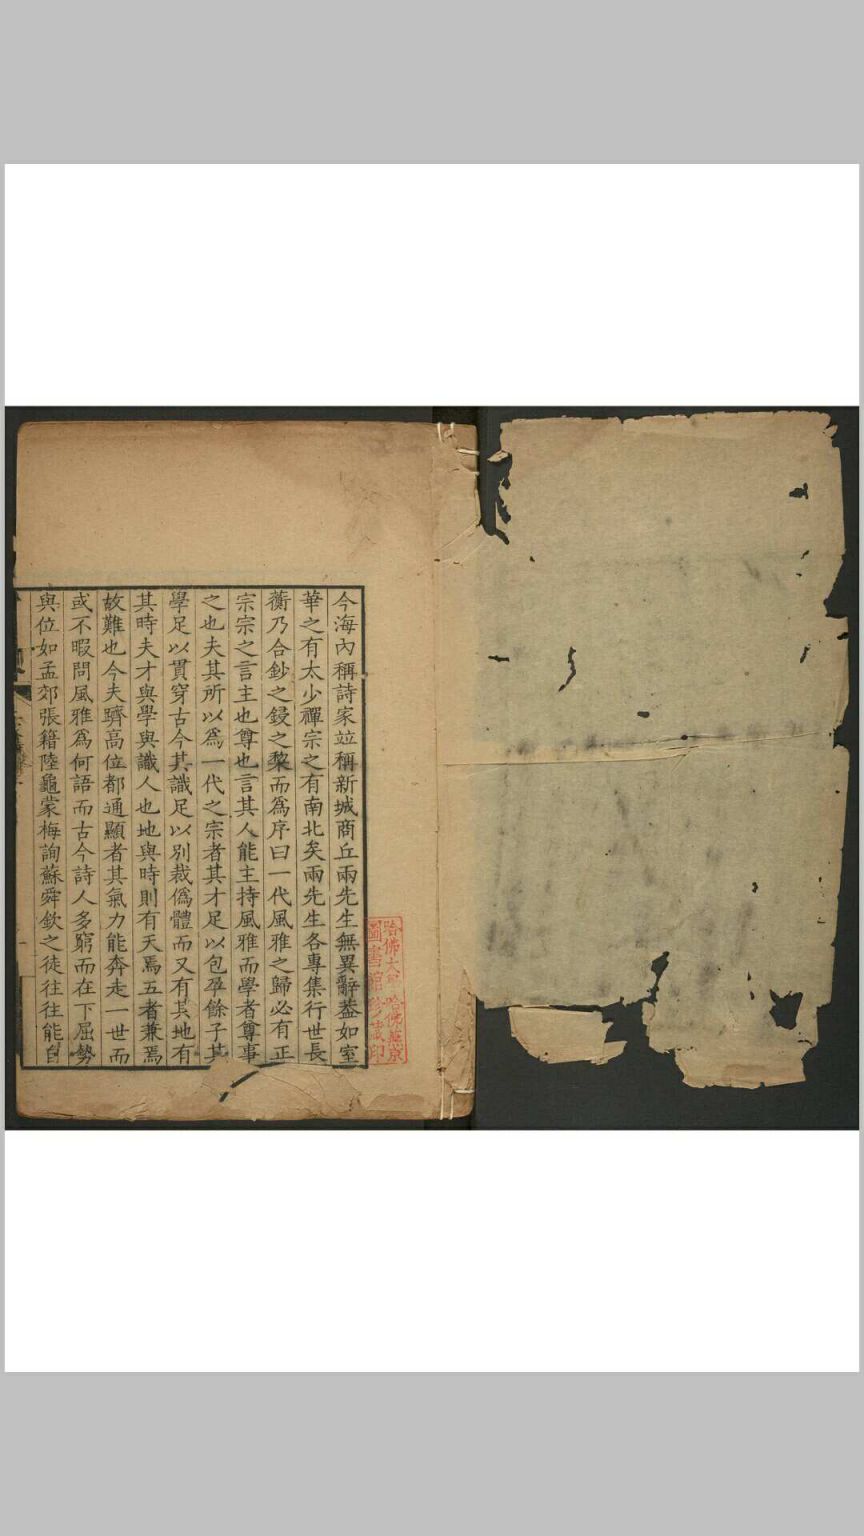 今海內稱詩家竝稱新城商丘兩先生無異辭葢如室
華之有太少禪宗之有南北矣兩先生各專集行世長
蘅乃合鈔之鋟之棃而爲序曰一代風雅之歸必有正
宗宗之言主也尊也言其人能主持風雅而學者尊事
之也夫其所以爲一代之宗者其才足以包孕餘子其
學足以貫穿古今其識足以別裁僞體而又有其地有
其時夫才與學與識人也地與時則有天焉五者兼焉
故難也今夫躋高位都通顯者其氣力能奔走一世而
或不暇問風雅爲何語而古今詩人多窮而在下屈勢
與位如孟郊張籍陸龜蒙梅詢蘇舜欽之徒往往能自
哈佛大學哈佛燕京
圖書館珍藏印